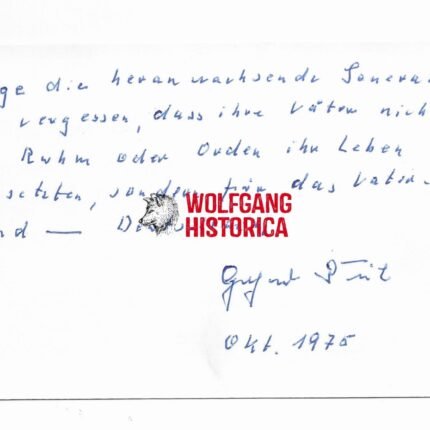 ge die heranwachsende Genera
vergessen, dass ihre Väter nich
Ruhm oder Orden ihr Leben
setzten, sondern für das Vater-
nd — De
WOLFGANG
HISTORICA
Okt. 1975